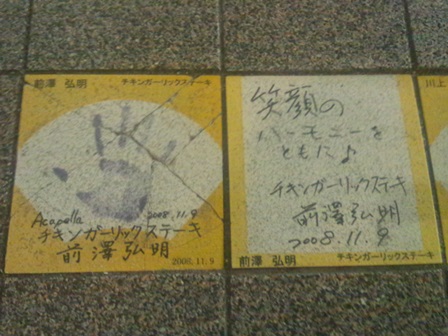 前澤 弘明
チキンガーリックステーキ
Acapella 2008.11.9
チキンガーリックステーキ
前澤弘明
2008.11.9
笑顔の
ハーモニーを
ともに♪
チキンガーリックステーキ
前澤弘明
2008.11.9
前澤 弘明
チキンガーリックステーキ
川上